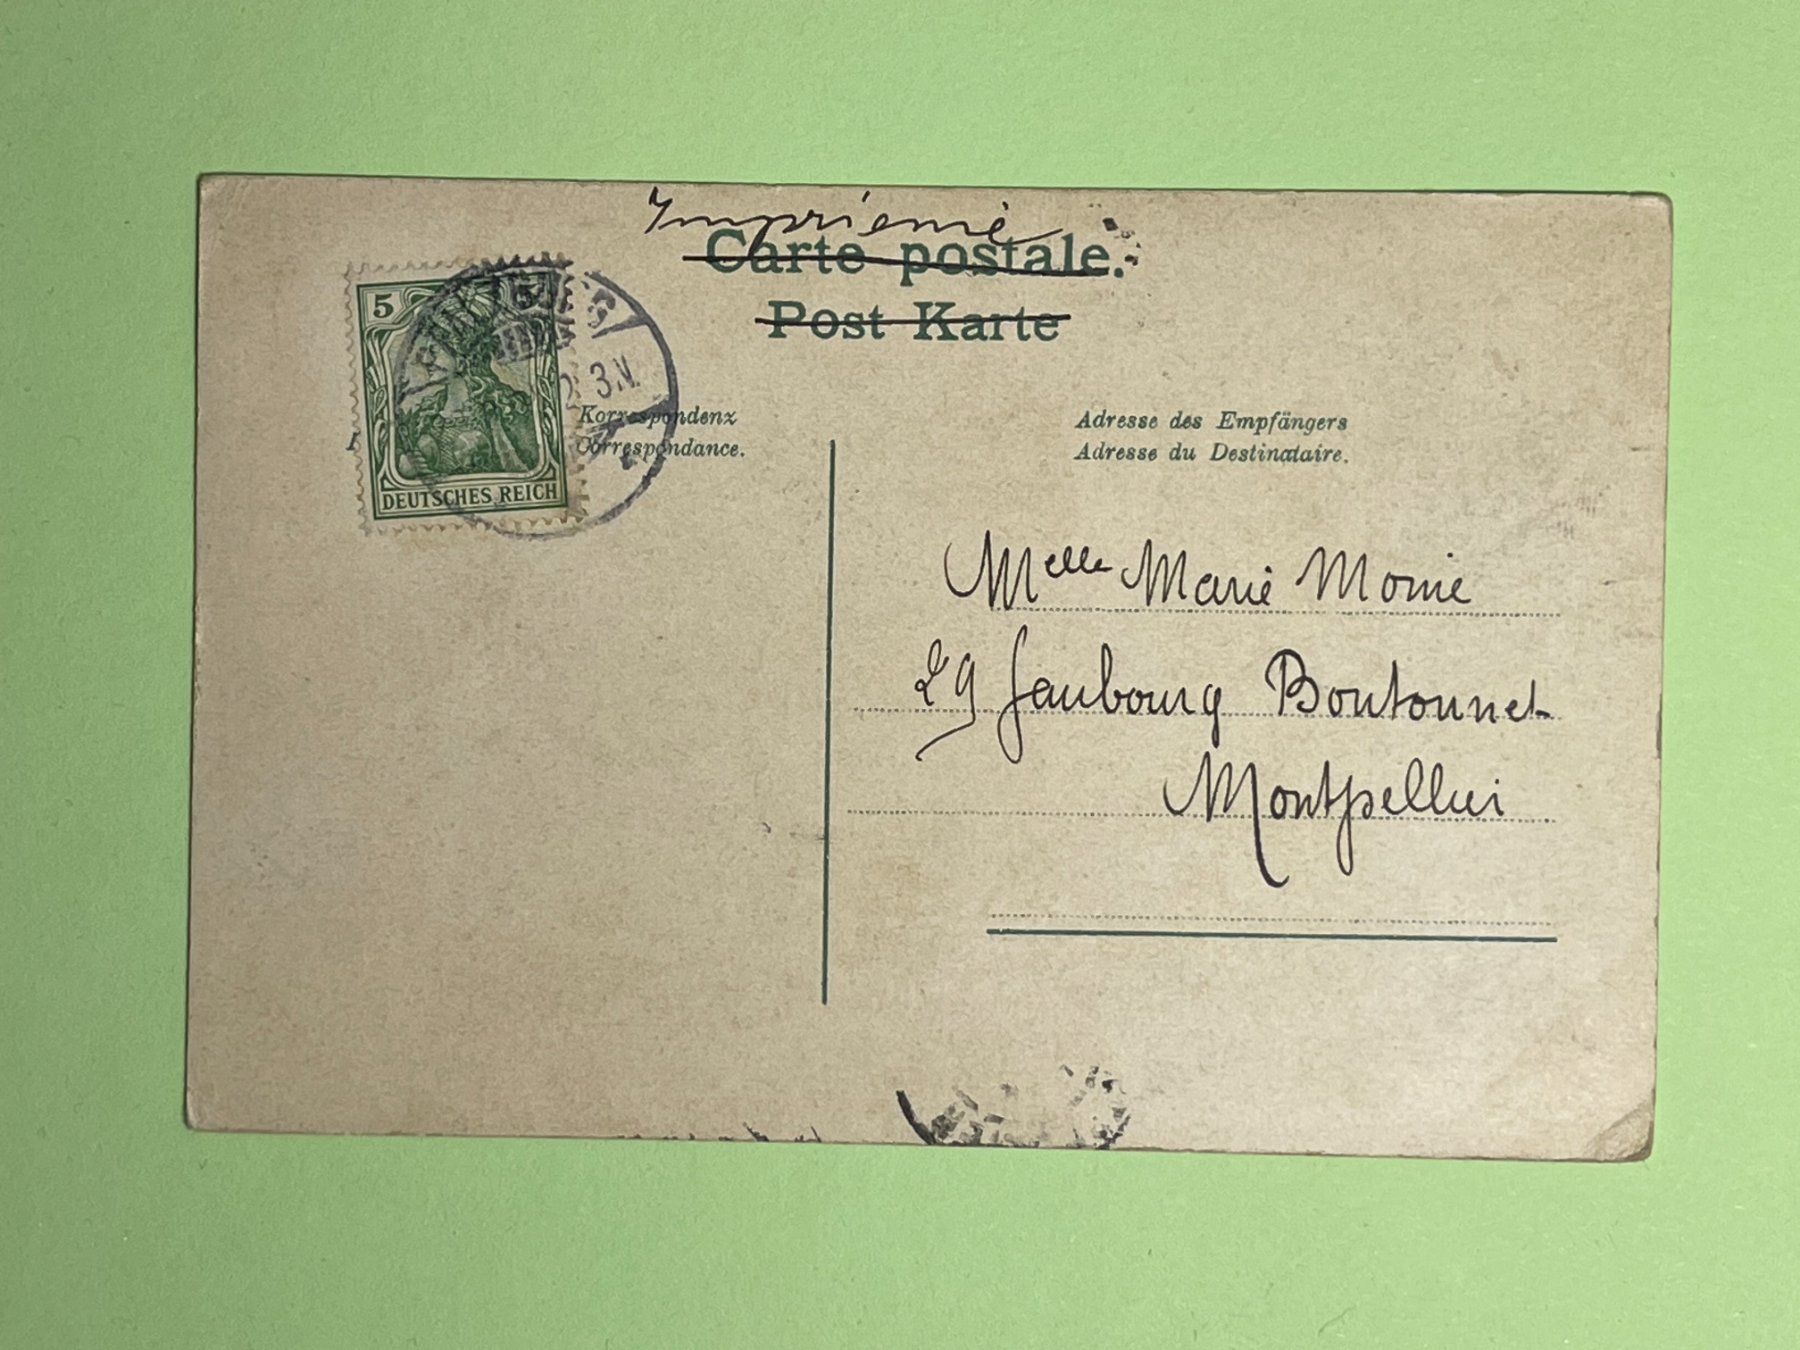 Imprimé
Carte postale.
Post Karte
5
5
3.N.
DEUTSCHES REICH
Korrespondenz
Correspondance.
Adresse des Empfängers
Adresse du Destinataire.
Melle Marie Monie
29 faubourg Boutonnet
Montpellier